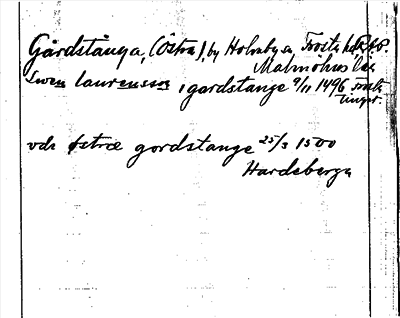 Gårdstånga, (Östra), by Holmby a, Frosta hd
Malmöhus län
Swen laurenson i gardstange 9/11 1496 Frosta
tingsr.
vdi østræ gordstange 25/3 1500
Hardeberga